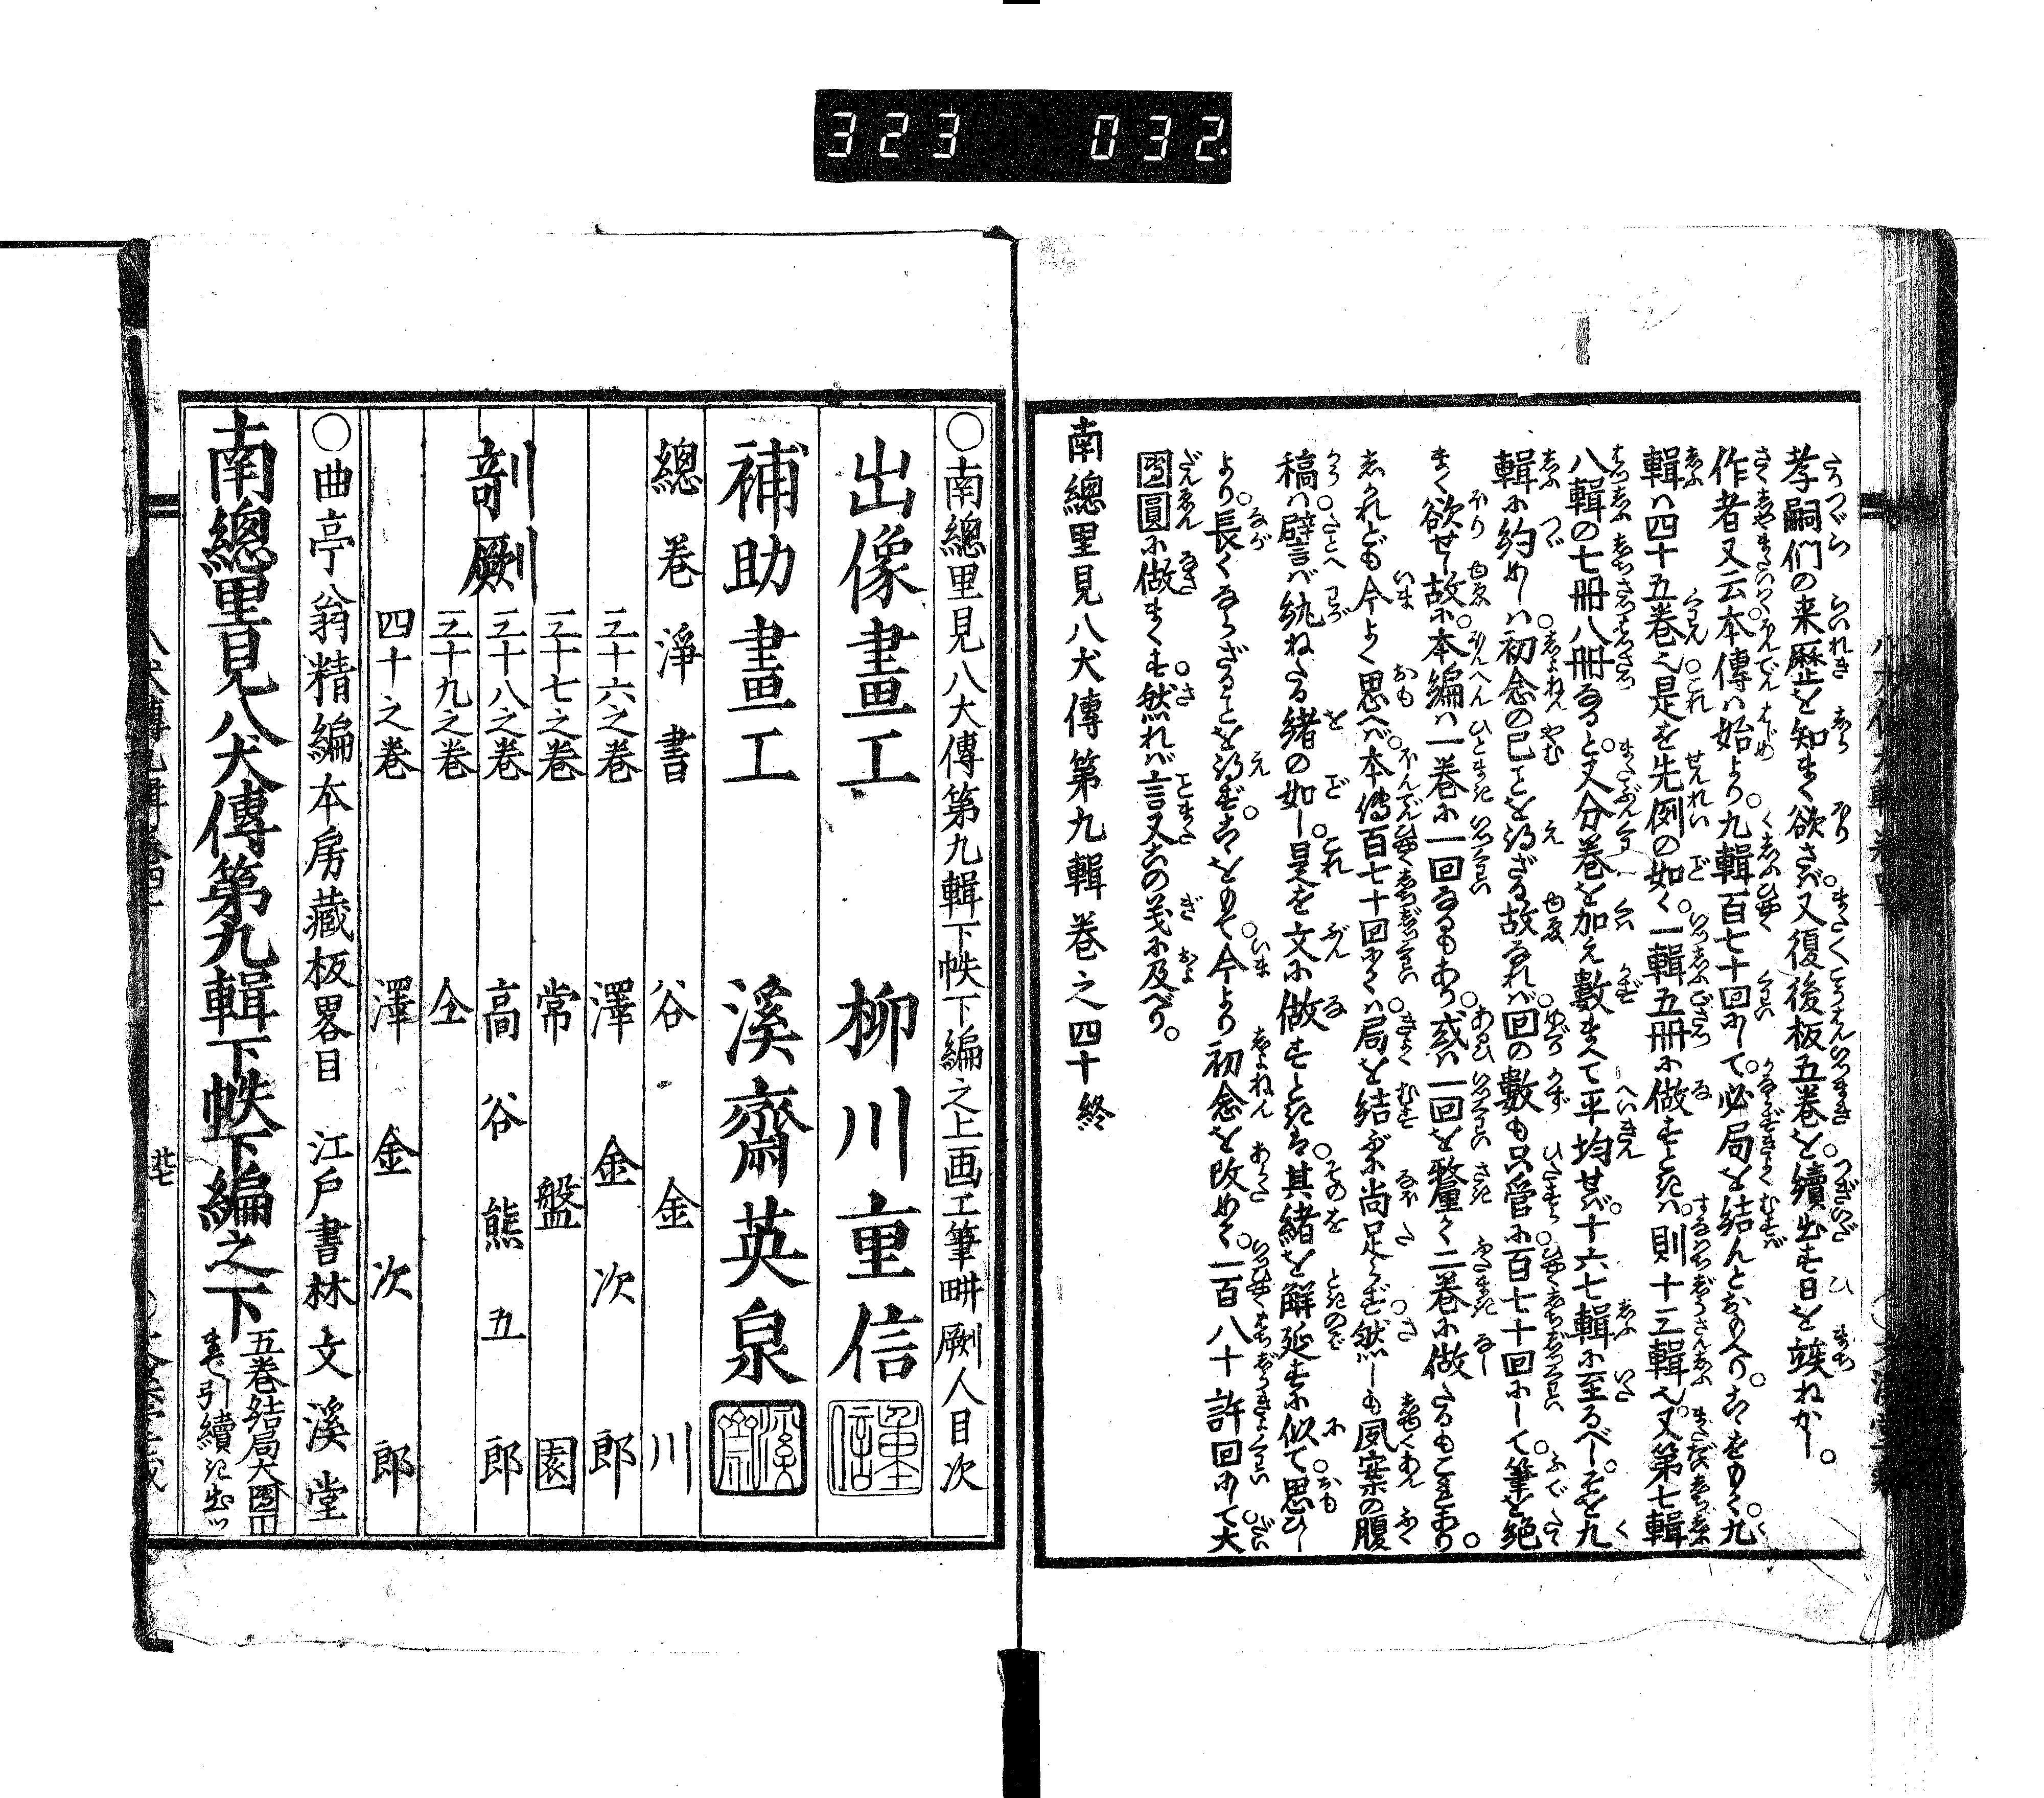 323 032
孝嗣们の来歴を知まく欲さば又復後板五巻を續出す日を竢ねかし。
作者又云本傳ハ始より九輯百七十回にして必局を結んとおもへりこゝをもて九
輯ハ四十五巻也是を先例の如く一輯五冊に做すときハ則十三輯也又第七輯
八輯の七冊八冊なると又分巻を加え數まへて平均せば十六七輯に至るべしそを九
輯に約めしハ初念の已ことを得ざる故なれバ回の數も只管に百七十回にして筆を絶
まく欲せし故に本編ハ一巻に一回なるもあり或ハ一回を釐て二巻に做たるもこれあり。
しかれども今よく思へバ本傳百七十回にてハ局を結ぶに尚足らず然しも夙案の腹
稿ハ譬バ紈ねたる緒の如し是を文に做すときは其緒を解延すに似て思ひし
より長くならざることを得ずこゝをもて今より初念を改めて一百八十許回にして大
團圓に做まくす然れバ言又この義に及べり。
南總里見八犬傳第九輯巻之四十終
○南總里見八犬傳第九輯下帙下編之上画工筆畊劂人目次
出像畫工 柳川重信
重信
補助畫工 溪齋英泉
溪齋
總巻淨書 谷金川
剞劂
三十六之巻 澤金次郎
三十七之巻 常盤園
三十八之巻 高谷熊五郎
三十九之巻 仝
四十之巻 澤金次郎
○曲亭翁精編本房藏板畧目 江戸書林文溪堂
南總里見八犬傳第九輯下帙下編之下
五巻結局大團円
まで引續き出ツ
廿七